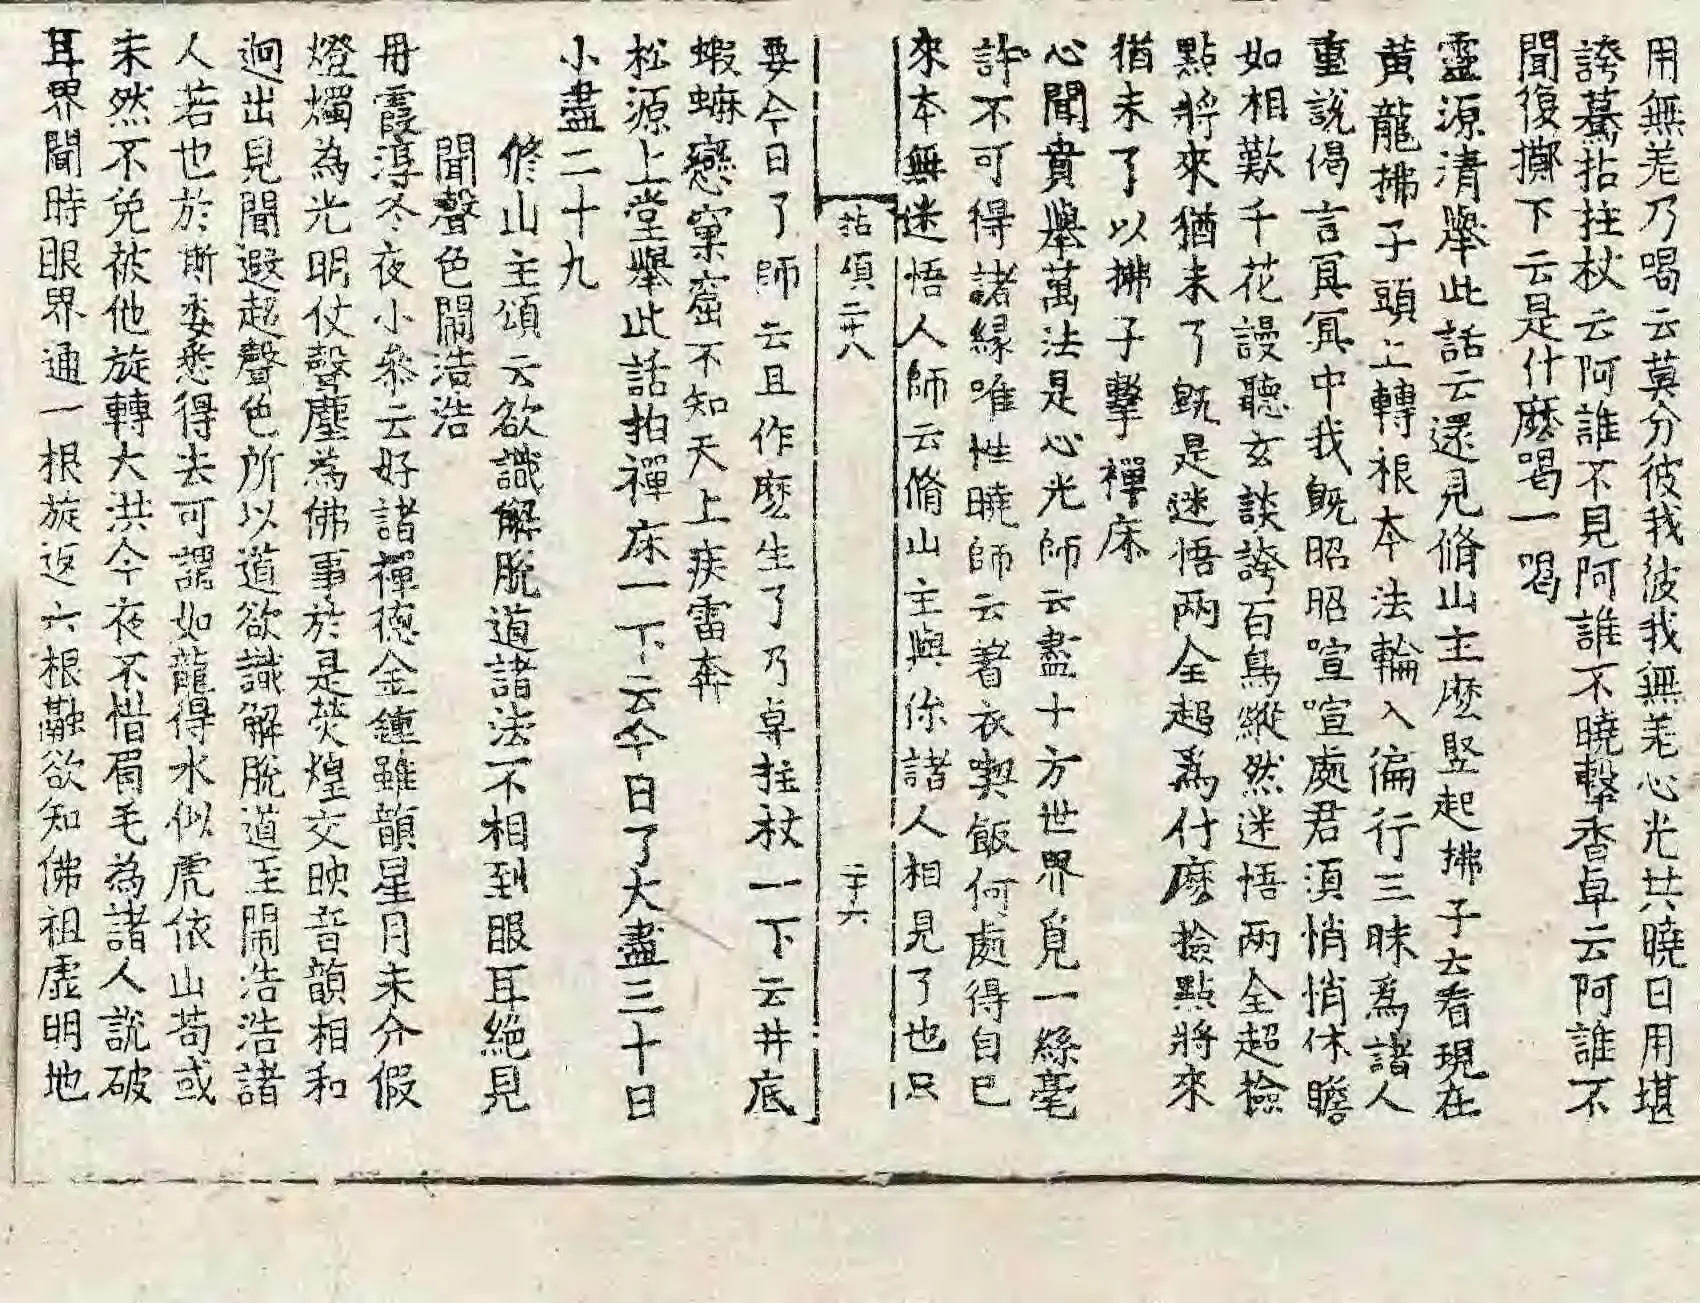 用無羌乃喝云莫分彼我彼我無羌心光共曉日用堪
誇驀拈拄杖云阿誰不見阿誰不曉擊香卓云阿誰不
聞復擲下云是什麽喝一喝
靈源清舉此話云還見脩山主麽竪起拂子云看現在
黃龍拂子頭上轉根本法輪入徧行三昧爲諸人
重說偈言冥冥中我旣昭昭喧喧處君須悄悄休瞻
如相歎千花謾聽玄談誇百鳥縱然迷悟兩全超撿
點將來猶未了旣是迷悟兩全超爲什麽撿點將來
猶未了以拂子擊禪床
心聞賁舉萬法是心光師云盡十方世界覓一絲毫
許不可得諸緣唯性曉師云著衣喫飯何處得自已
來本無迷悟人師云脩山主與你諸人相見了也只
拈頌二十八 二十六
要今日了師云且作麽生了乃卓拄杖一下云井底
蝦䗫戀窠窟不知天上疾雷奔
松源上堂舉此話拍禪床一下云今日了大盡三十日
小盡二十九
修山主頌云欲識解脫道諸法不相到眼耳絕見
聞聲色鬧浩浩
丹霞淳冬夜小叅云好諸禪德金鍾雖韻星月未分假
燈燭為光明仗聲塵為佛事於是熒煌交映音韻相和
逈出見聞逈超聲色所以道欲識解脫道至鬧浩浩諸
人若也於斯委悉得去可謂如龍得水似虎依山苟或
未然不免被他旋轉大洪今夜不惜眉毛為諸人說破
耳界聞時眼界通一根旋返六根融欲知佛祖虛明地